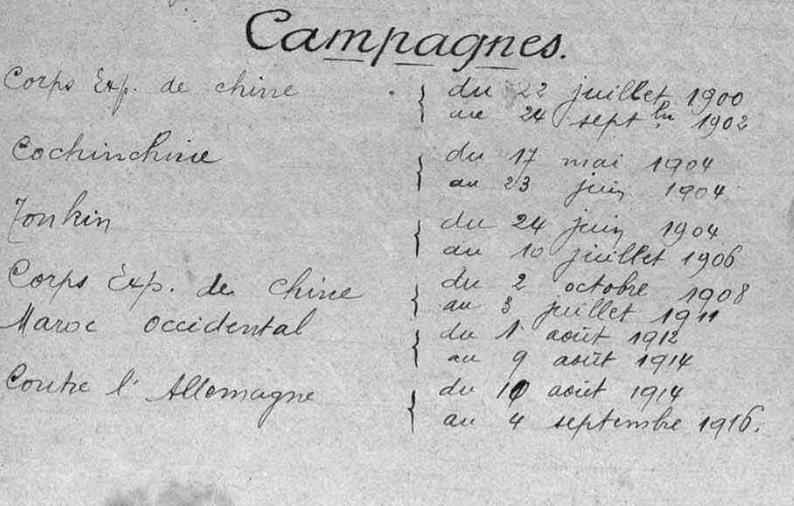 Campagnes.
Corps Exp. de chine { du 22 juillet 1900
au 24 septbre 1902
Cochinchine { du 17 mai 1904
au 23 juin 1904
Tonkin { du 24 juin 1904
au 10 juillet 1906
Corps Exp. de chine { du 2 octobre 1908
au 3 juillet 1911
Maroc occidental { du 1er août 1912
au 9 août 1914
Contre l'Allemagne { du 10 août 1914
au 4 septembre 1916.